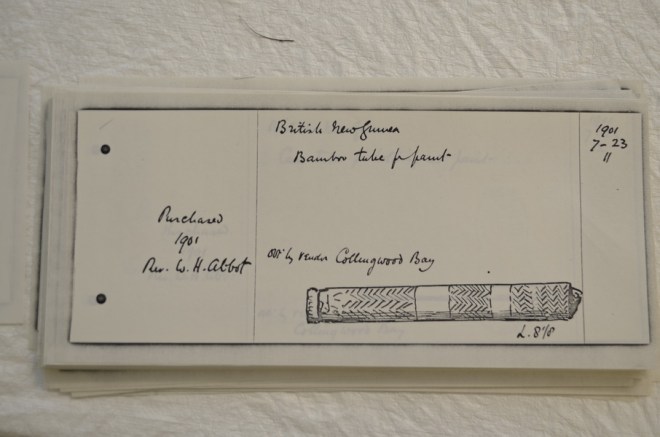 British New Guinea
Bamboo tube for paint
1901
7-23
11
Purchased
1901
Rev. W. H. Abbot
Collingwood Bay
L. 8⅞